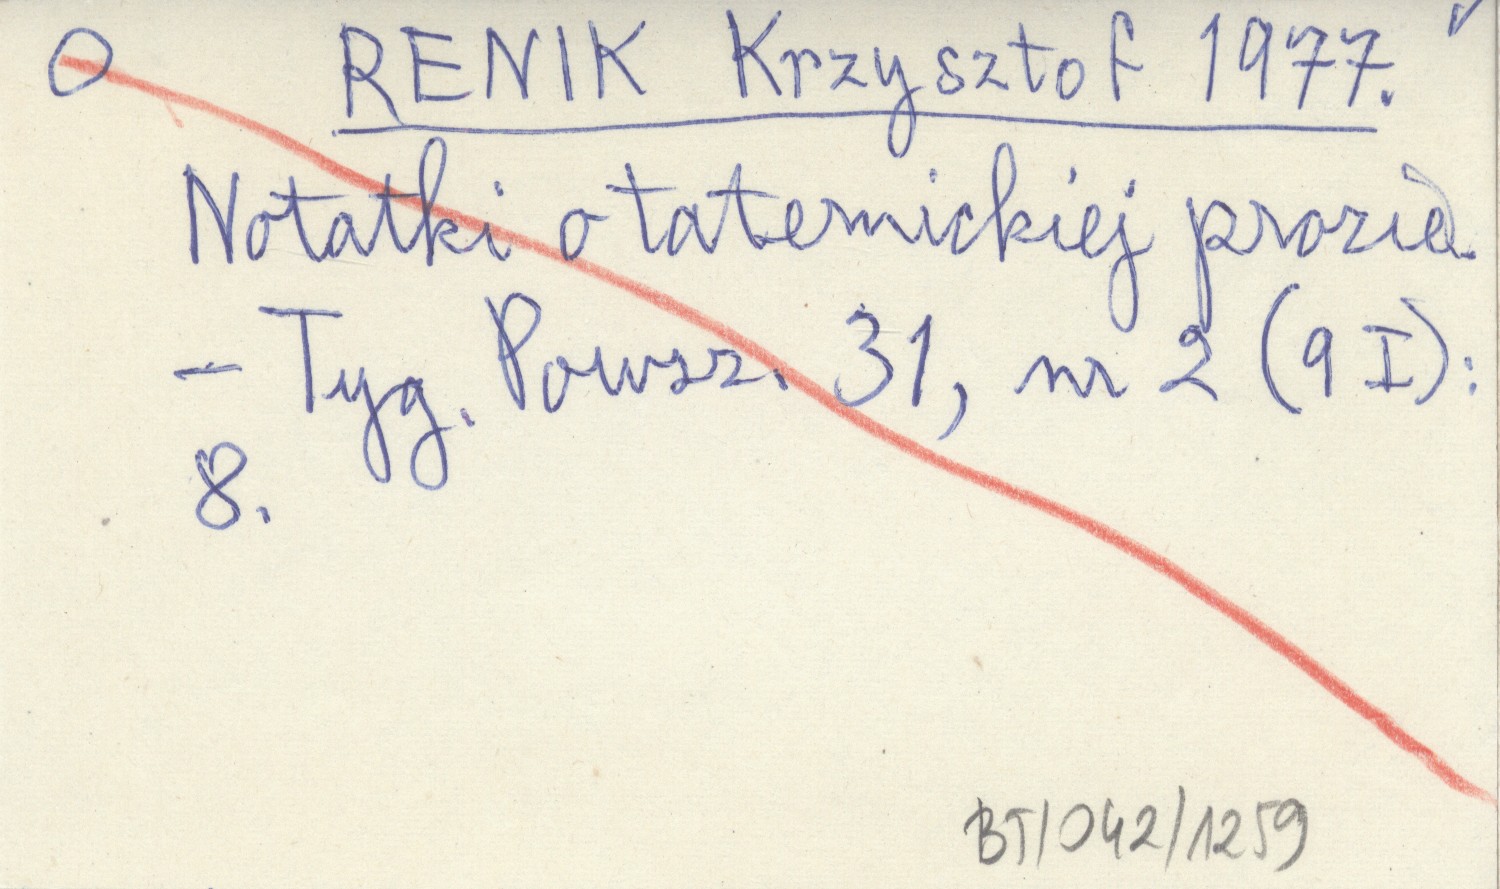 O RENIK Krzysztof 1977.
Notatki o taternickiej prozie.
- Tyg. Powsz. 31, nr 2 (9 I):
8.
BT/042/1259